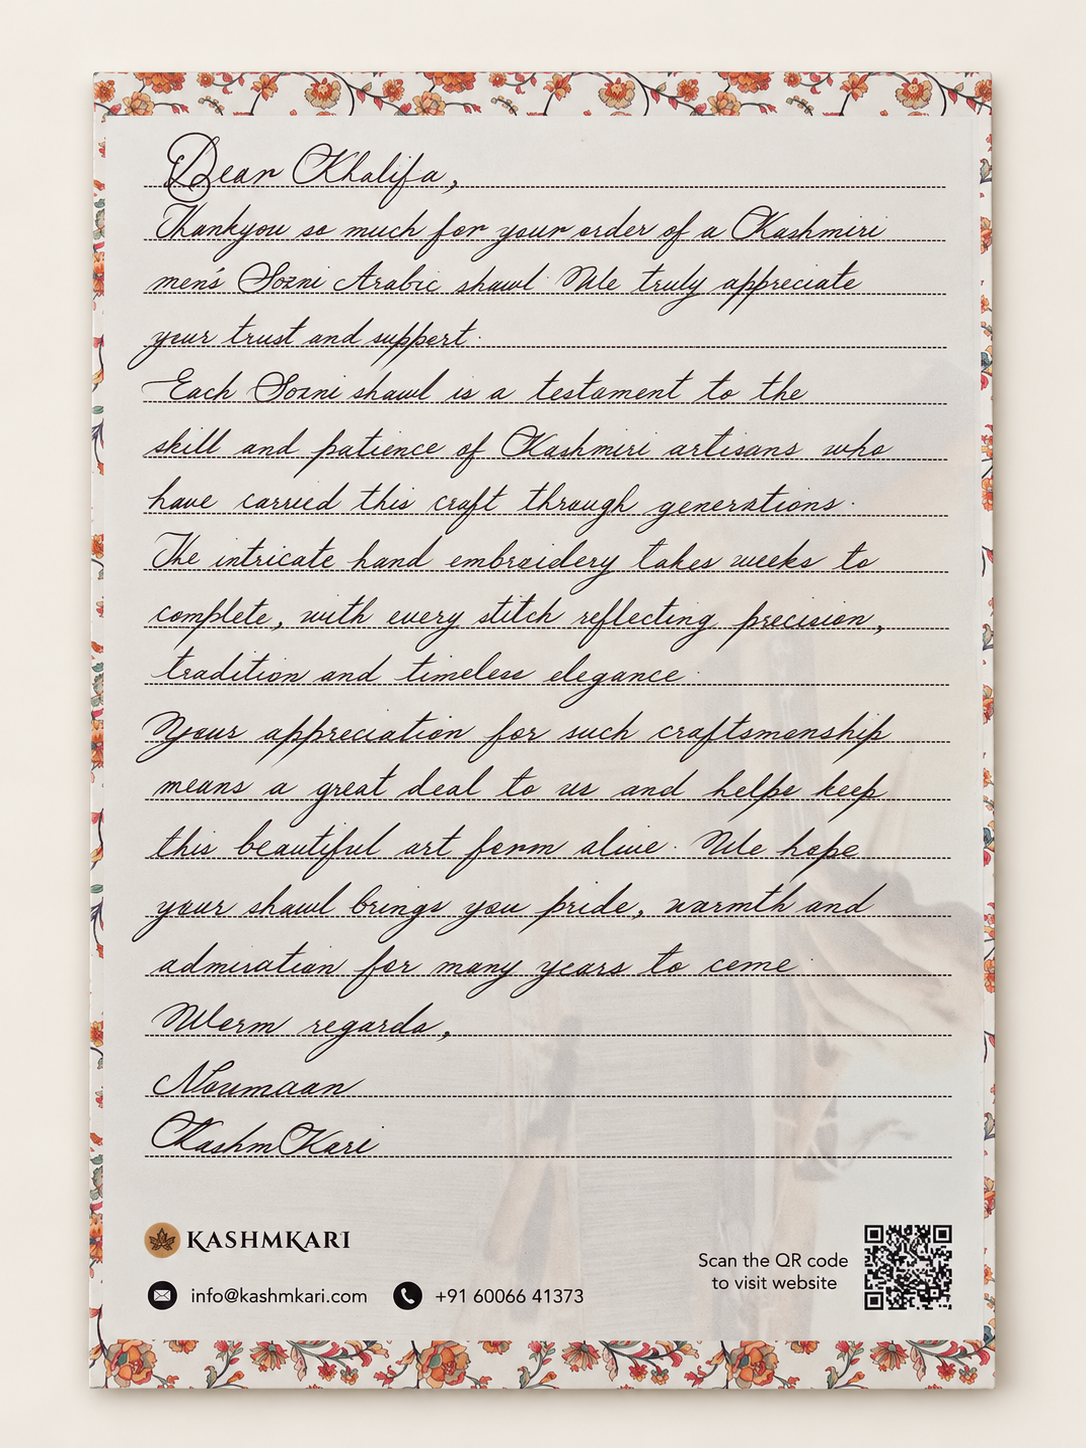 Dear Khalifa,
Thankyou so much for your order of a Kashmiri
men's Sozni Arabic shawl. We truly appreciate
your trust and support.
Each Sozni shawl is a testament to the
skill and patience of Kashmiri artisans who
have carried this craft through generations.
The intricate hand embroidery takes weeks to
complete, with every stitch reflecting precision,
tradition and timeless elegance.
Your appreciation for such craftsmanship
means a great deal to us and helps keep
this beautiful art form alive. We hope
your shawl brings you pride, warmth and
admiration for many years to come.
Warm regards,
Noumaan
KashmKari
KASHMKARI
info@kashmkari.com +91 60066 41373
Scan the QR code
to visit website